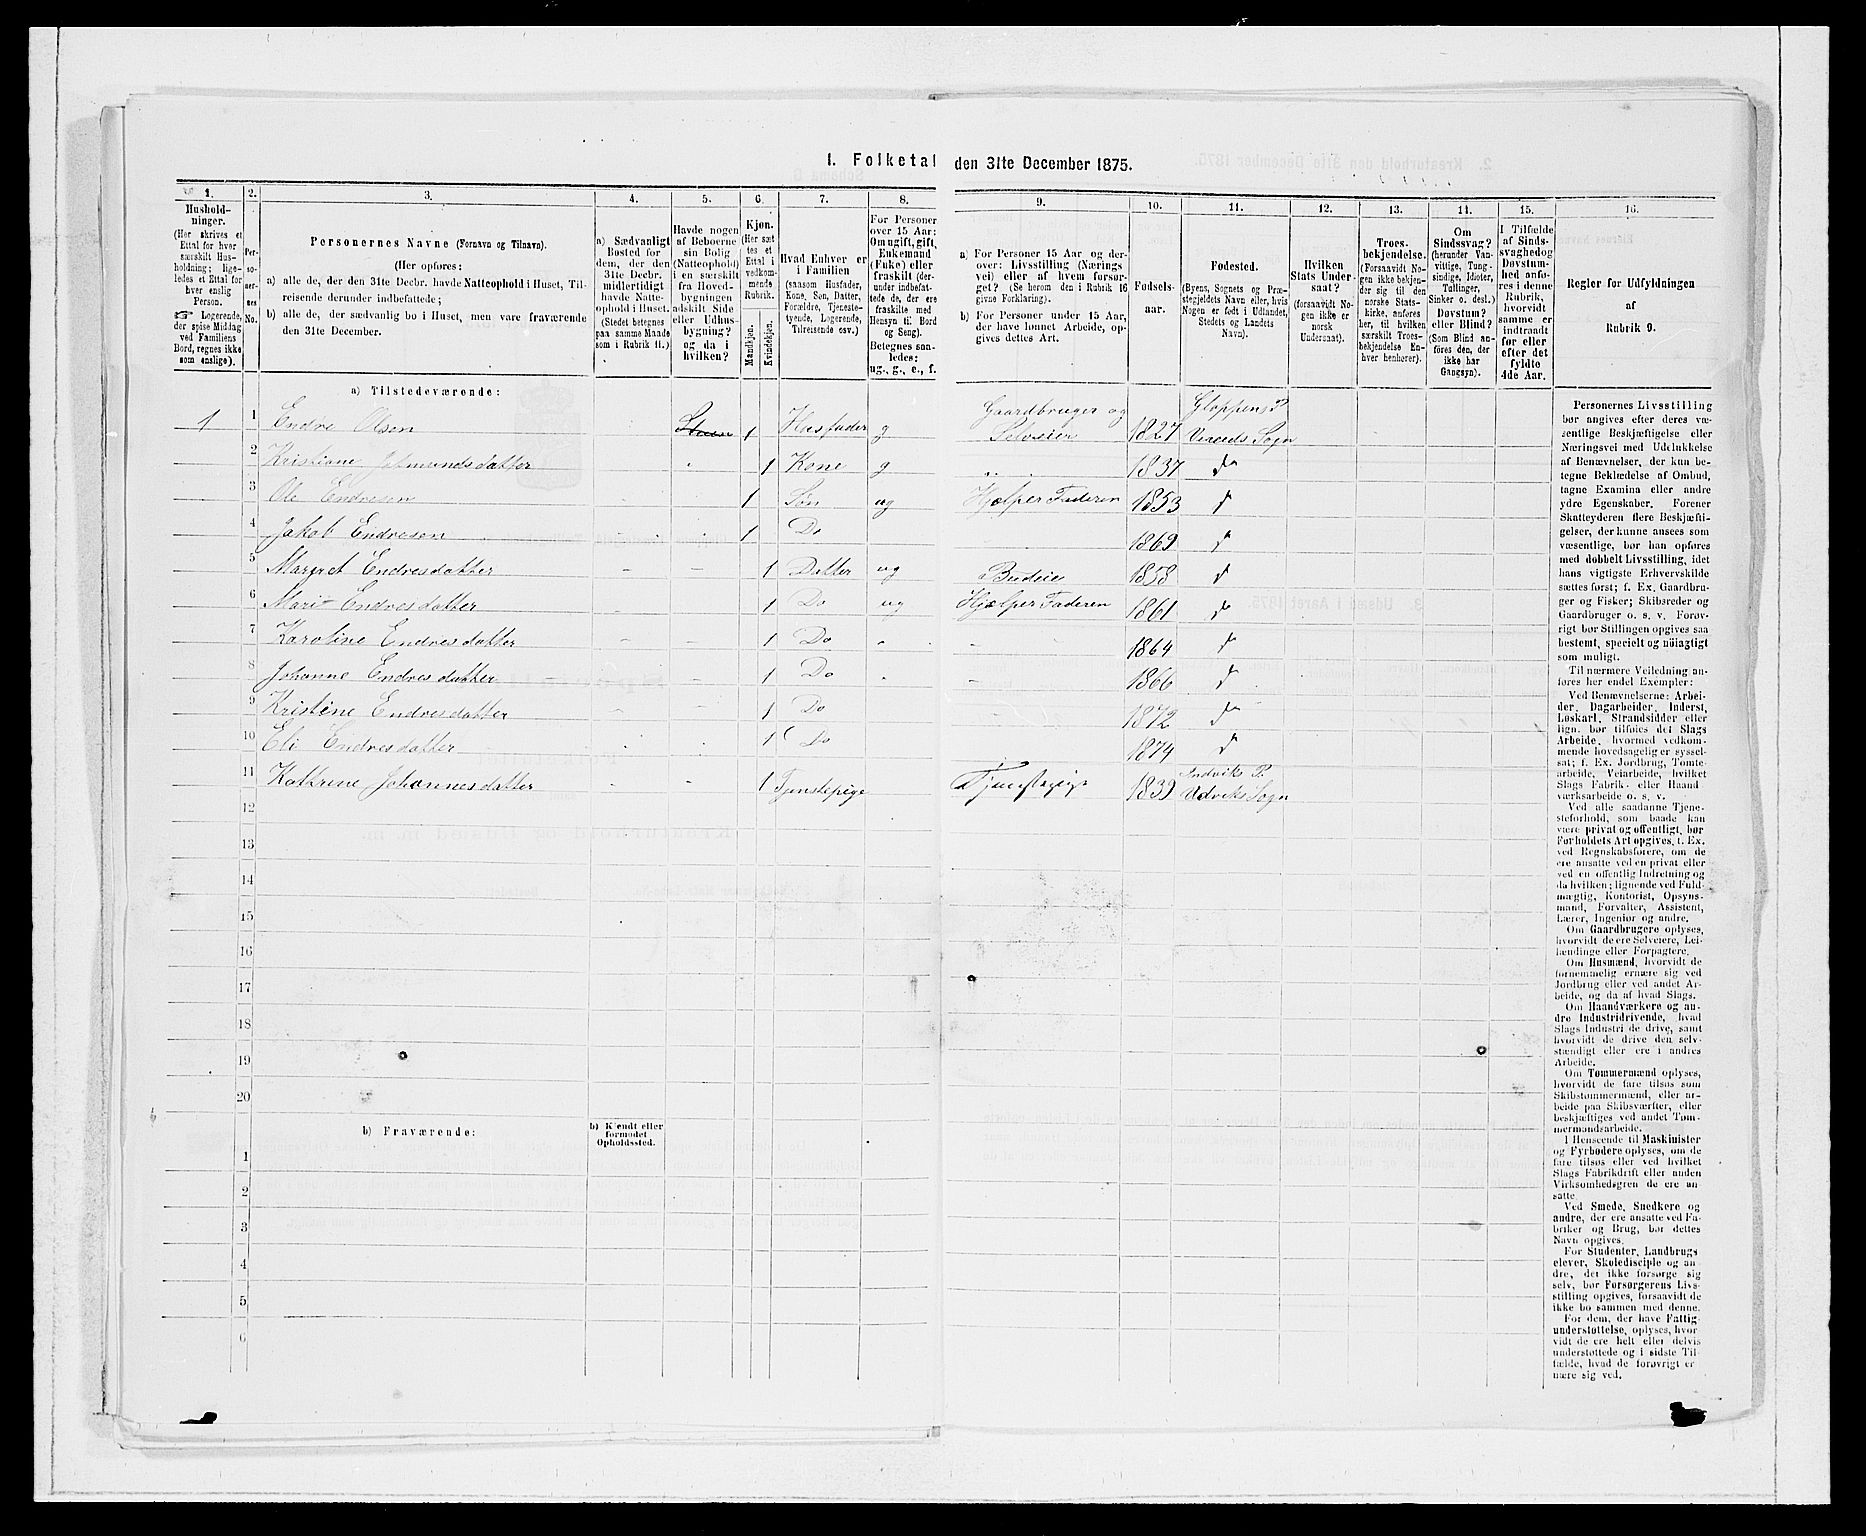 1. Folketal den 31te December 1875.
1.
2.
3.
4.
5.
6.
7.
8.
9.
10.
11.
12.
13.
14.
15.
16.
Husholdninger.
(Her skrives et Ettal for hver særskilt Husholdning; ligeledes et Ettal for hver enslig Person.
☞ Logerende, der spise Middag ved Familiens Bord, regnes ikke som enslige).
Personernes No.
Personernes Navne (Fornavn og Tilnavn).
(Her opføres:
a) alle de, der den 31te Decbr. havde Natteophold i Huset, Tilreisende derunder indbefattede;
b) alle de, der sædvanlig bo i Huset, men vare fraværende den 31te December.
a) Sædvanligt Bosted for dem, der den 31te Decbr. midlertidigt havde Natteophold i Huset. (Stedet betegnes paa samme Maade som i Rubrik 11.)
Havde nogen af Beboerne sin Bolig (Natteophold) i en særskilt fra Hovedbygningen adskilt Side eller Udhusbygning? og da i hvilken?
Kjøn. (Her sættes et Ettal i vedkommende Rubrik.
Mandkjøn.
Kvindekjøn.
Hvad Enhver er i Familien
(saasom Husfader, Kone, Søn, Datter, Forældre, Tjenestetyende, Logerende, Tilreisende osv.)
For Personer over 15 Aar: Om ugift, gift, Enkemand (Enke) eller fraskilt (derunder indbefattede de, der ere fraskilte med Hensyn til Bord og Seng).
Betegnes saaledes:
ug., g., e., f.
a) For Personer 15 Aar og derover: Livsstilling (Næringsvei) eller af hvem forsørget? (Se herom den i Rubrik 16 givne Forklaring).
b) For Personer under 15 Aar, der have lønnet Arbeide, opgives dettes Art.
Fødselsaar.
Fødested.
(Byens, Sognets og Præstegjeldets Navn eller, hvis Nogen er født i Udlandet, Stedets og Landets Navn).
Hvilken Stats Undersaat?
(forsaavidt Nogen ikke er norsk Undersaat).
Troesbekjendelse.
(Forsaavidt Nogen ikke bekjender sig til den norske Statskirke, anføres her, til hvilken særskilt Troesbekjendelse Enhver henhører).
Om Sindssvag?
(herunder Vanvittige, Tungsindige, Idioter, Tullinger, Sinker o. desl.)
Døvstum?
eller Blind?
(Som Blind anføres den, der ikke har Gangsyn).
I Tilfælde af Sindssvaghed og Døvstumhed anføres i denne Rubrik, hvorvidt samme er indtraadt før eller efter det fyldte 4de Aar.
Regler for Udfyldningen af Rubrik 9.
a) Tilstedeværende:
1 1 Endre Olsen 1 Husfader g Gaardbruger og Selveier 1827 Gloppens P. Sogn
2 Kristiane datter 1 Kone g 1837 do
3 Ole Endresen 1 Søn ug Hjælper Faderen 1853 d
4 Jakob Endresen 1 Do 1869 d
5 Margret Endresdatter 1 Datter ug Budeie 1858 d
6 Mari Endresdatter 1 Do ug Hjælper Faderen 1861 do
7 Karoline Endresdatter 1 Do 1864 d
8 Johanne Endresdatter 1 Do 1866 d
9 Kristine Endresdatter 1 Do 1872 do
10 Eli Endresdatter 1 Do 1874 d
11 Kathrine Johannesdatter 1 Tjenstepige Tjenstepige 1839 Indviks P. Udviks Sogn
12
13
14
15
16
17
18
19
20
b) Fraværende:
b) Kjendt eller formodet Opholdssted.
1
2
3
4
5
6
Personernes Livsstilling
bør angives efter deres væsentlige
Beskjæftigelse eller
Næringsvei med Udelukkelse
af Benævnelser, der kun betegne
Beklædelse af Ombud,
tagne Examina eller andre
ydre Egenskaber. Forener
Skatteyderen flere Beskjæftigelser,
der kunne ansees som
væsentlige, bør han opføres
med dobbelt Livsstilling, idet
hans vigtigste Erhvervskilde
sættes først; f. Ex. Gaardbruger
og Fisker; Skibsreder og
Gaardbruger o. s. v. Forøvrigt
bør Stillingen opgives saa
bestemt, specielt og nøiagtigt
som muligt.
Til nærmere Veiledning anføres
her endel Exempler:
Ved Benævnelserne: Arbeider,
Dagarbeider, Inderst,
Løskarl, Strandsidder eller
lign. bør tilføies det Slags
Arbeide, hvormed vedkommende
hovedsagelig er sysselsat;
f. Ex. Jordbrug, Tomtearbeide,
Veiarbeide, hvilket
Slags Fabrik- eller Haandværksarbeide
o. s. v.
Ved alle saadanne Tjenesteforhold,
som baade kan
være privat og offentligt, bør
Forholdets Art opgives, f. Ex.
ved Regnskabsførere, om de
ere ansatte ved en privat eller
ved en offentlig Indretning og
da hvilken; lignende ved Fuldmægtig,
Kontorist, Opsynsmand,
Forvalter, Assistent,
Lærer, Ingeniør og andre.
Om Gaardbrugere oplyses,
hvorvidt de ere Selveiere, Leilændinge
eller Forpagtere.
Om Husmænd, hvorvidt de
fornemmelig ernære sig ved
Jordbrug eller ved andet Arbeide,
og da af hvad Slags.
Om Haandværkere og andre
Industridrivende, hvad
Slags Industri de drive, samt
hvorvidt de drive den selvstændigt
eller ere i andres
Arbeide.
Om Tømmermænd oplyses,
hvorvidt de fare tilsøs som
Skibstømmermænd, eller arbeide
paa Skibsværfter, eller
beskjæftiges ved andet Tømmermandsarbeide.
I Henseende til Maskinister
og Fyrbødere oplyses, om de
fare tilsøs eller ved hvilket
Slags Fabrikdrift eller anden
Virksomhedsgren de ere ansatte.
Ved Smede, Snedkere og
andre, der ere ansatte ved Fabriker
og Brug, bør dettes
Navn opgives.
For Studenter, Landbrugselever,
Skoledisciple og andre,
der ikke forsørge sig
selv, bør Forsørgerens Livsstilling
opgives, forsaavidt de
ikke bo sammen med denne.
For dem, der have Fattigunderstøttelse,
oplyses, hvorvidt
de ere helt eller delvis
understøttede og i sidste Tilfælde,
hvad de forøvrigt ernære
sig ved.